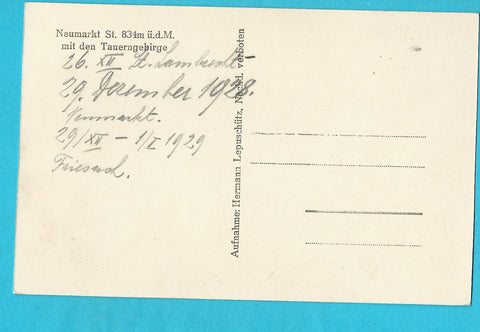 Neumarkt St. 834m ü.d.M.
mit den Tauerngebirge
26. XII St. Lambrecht –
29. Dezember 1928.
Neumarkt.
29/XII – 1/I 1929
Friesach.
Aufnahme: Hermann Lepuschütz, Nachd. verboten